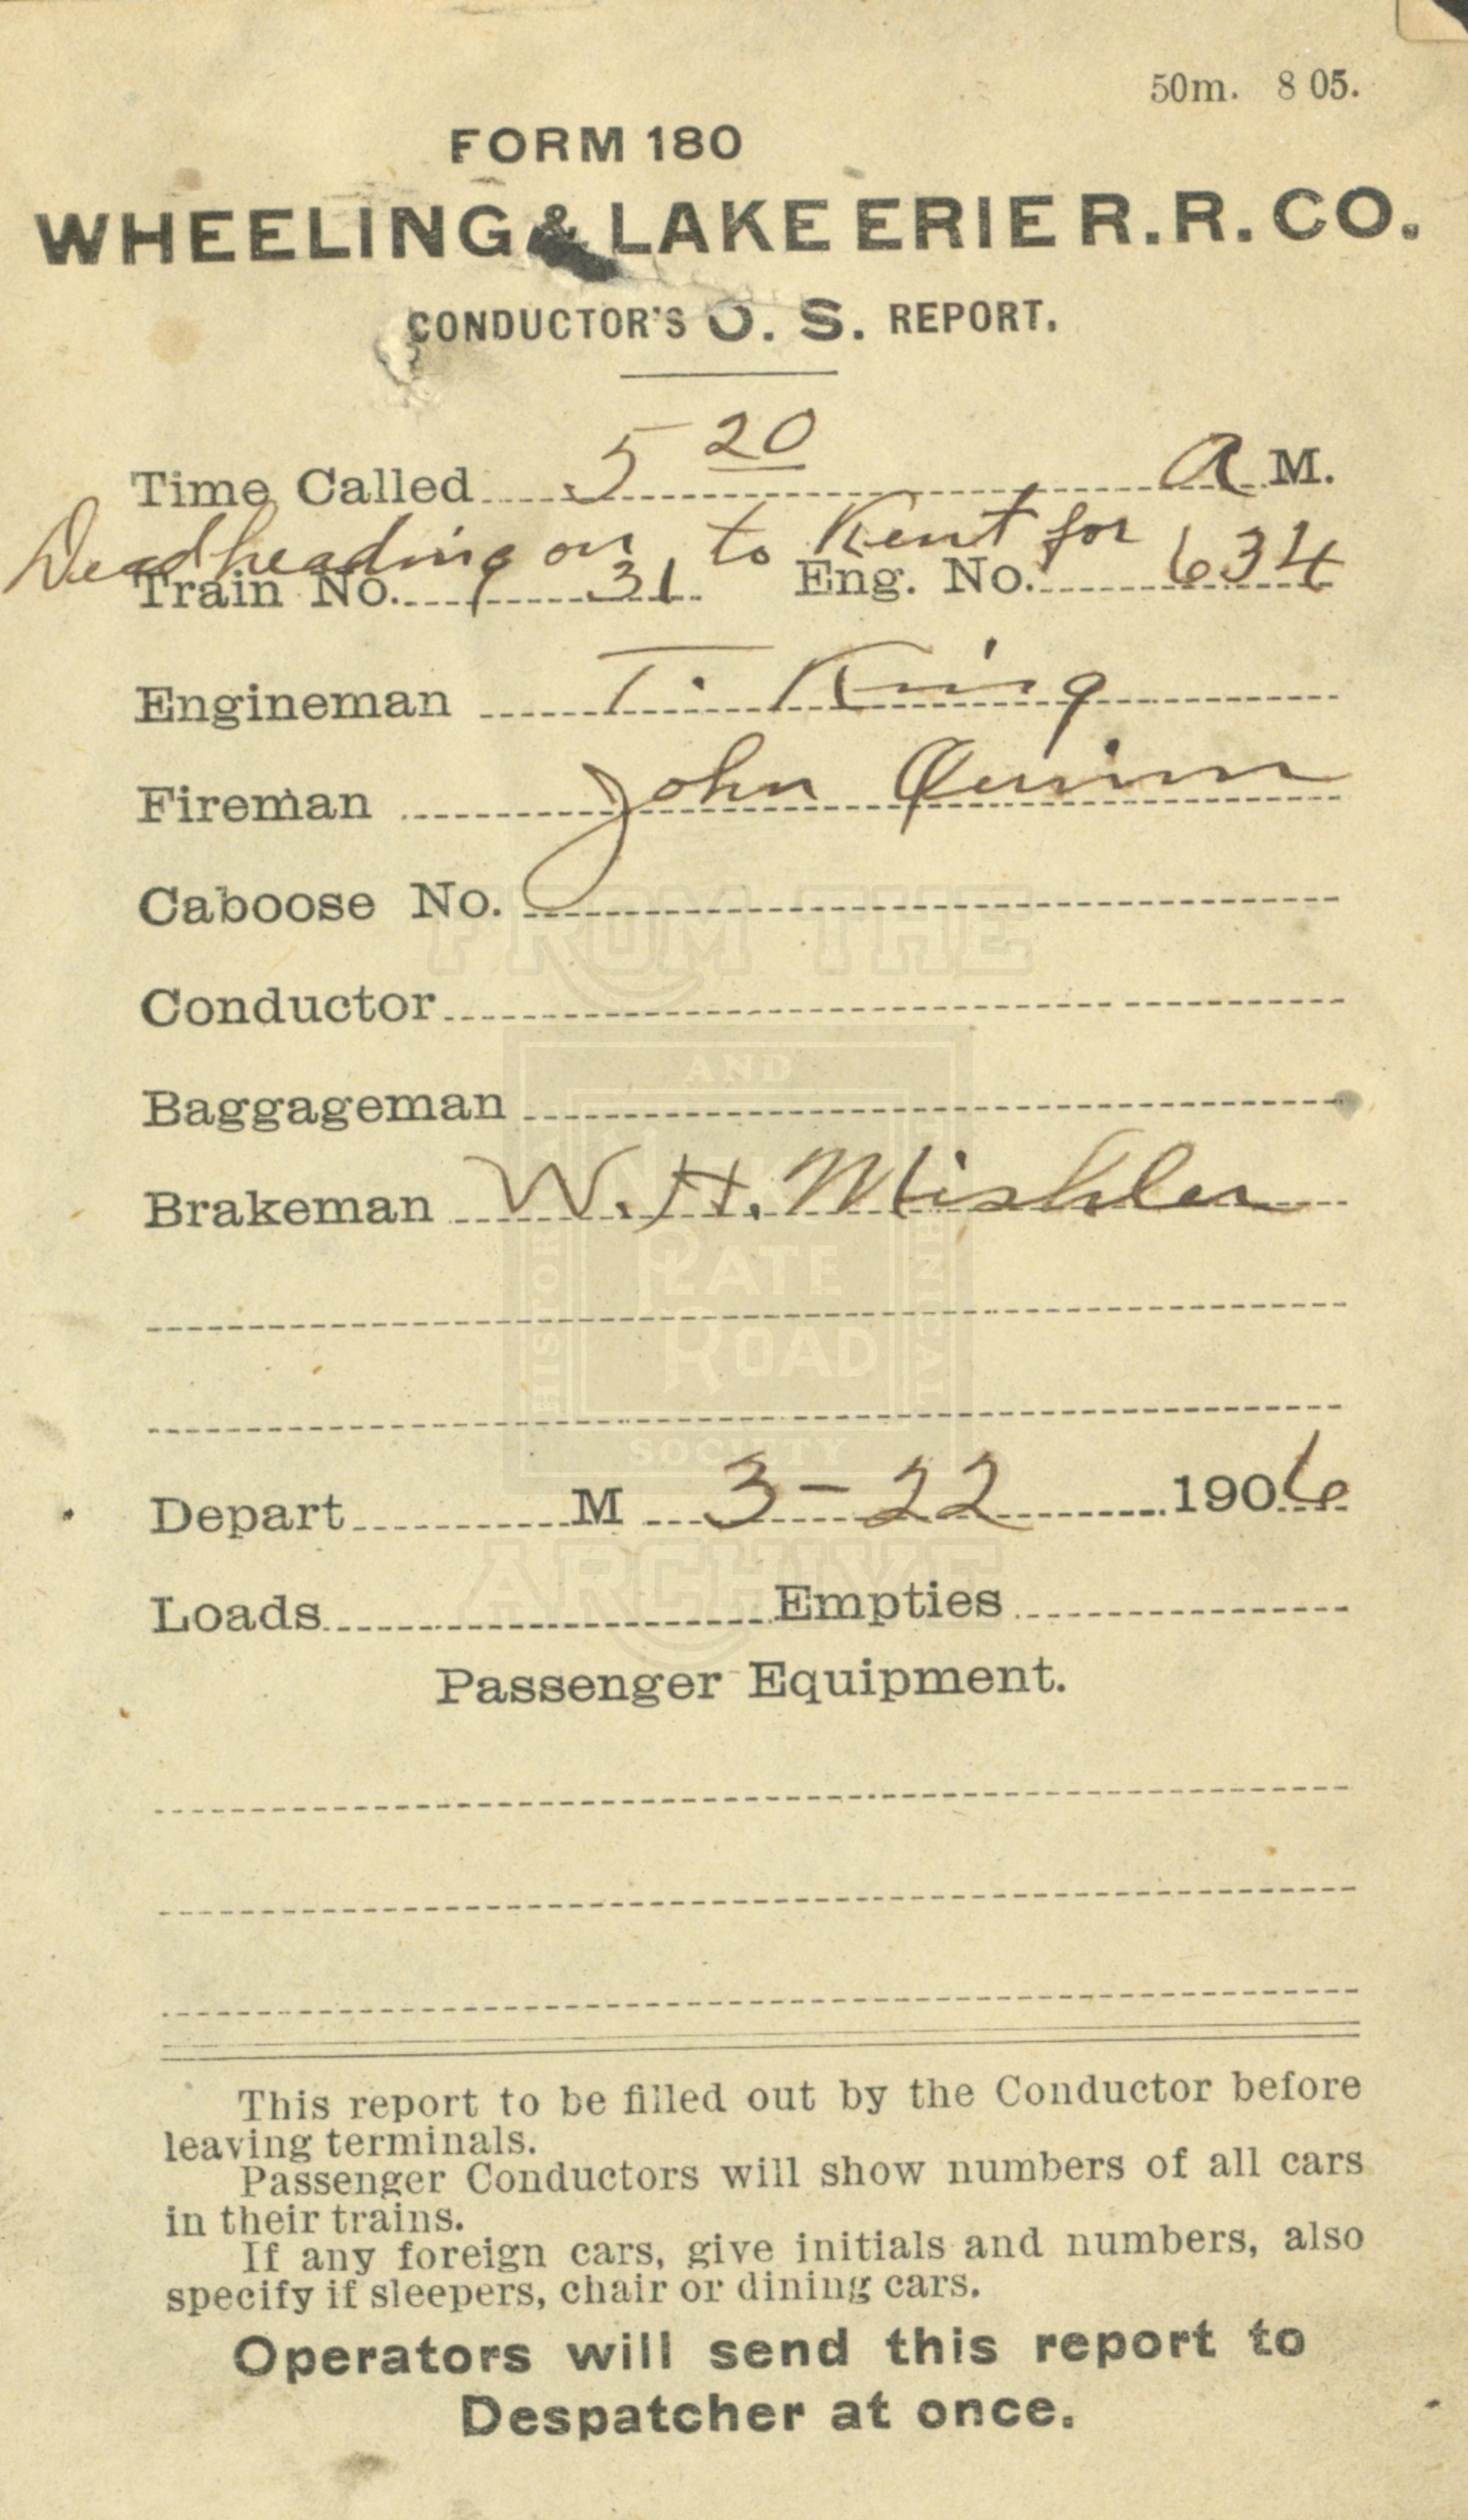 50m. 8 05.
FORM 180
WHEELING & LAKE ERIE R.R. CO.
CONDUCTOR'S O. S. REPORT.
Time Called 5 20 A M.
Deadheading on to Kent for
Train No. 31 Eng. No. 634
Engineman T. King
Fireman John Quinn
Caboose No.
FROM THE
Conductor
AND
Baggageman
Brakeman W. H. Mishler
PLATE
ROAD
SOCIETY
Depart M 3-22 1906
ARCHIVE
Loads Empties
Passenger Equipment.
This report to be filled out by the Conductor before
leaving terminals.
Passenger Conductors will show numbers of all cars
in their trains.
If any foreign cars, give initials and numbers, also
specify if sleepers, chair or dining cars.
Operators will send this report to
Despatcher at once.